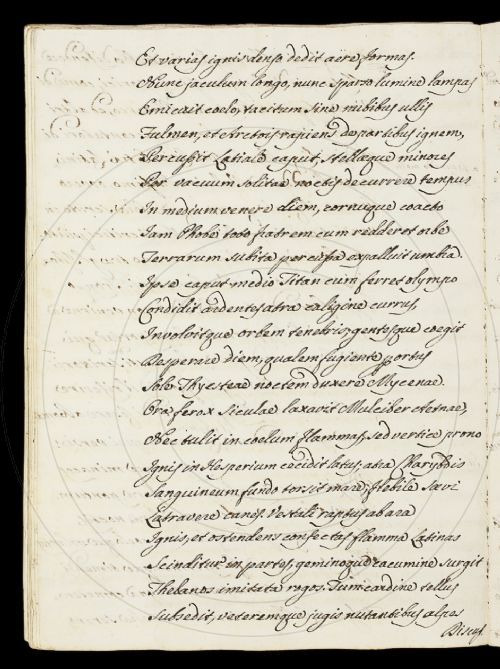 Et varias ignis denso dedit aëre formas.
Nunc jaculum longo, nunc sparso lumine lampas
Emicuit coelo, tacitum sine nubibus ullis
Fulmen, et Arctois rapiens de partibus ignem,
Percussit Latiale caput, stellæque minores
Per vacuum solitae noctis decurrere tempus
In medium venere diem, cornuque coacto
Iam Phobe toto fratrem cum redderet orbe
Terrarum subita percussa expalluit umbra.
Ipse caput medio Titan cum ferret olympo
Condidit ardentes atra caligine currus,
Involvitque orbem tenebris, gentesque coegit
Desperare diem, qualem fugiente per ortus
Sole Thyesteae noctem duxere Mycenae.
Ora ferox Siculae laxavit Mulciber Aetnae,
Nec tulit in coelum flammas, sed vertice prono
Ignis in Hesperium cecidit latus, atra Charybdis
Sanguineum fundo torsit mare; flebile saevi
Latravere canes. Vestali raptus ab ara
Ignis, et ostendens confectas flamma Latinas
Scinditur in partes, geminoque cacumine surgit
Thebanos imitata rogos. Tum cardine tellus
Subsedit, veteremque jugis nutantibus alpes